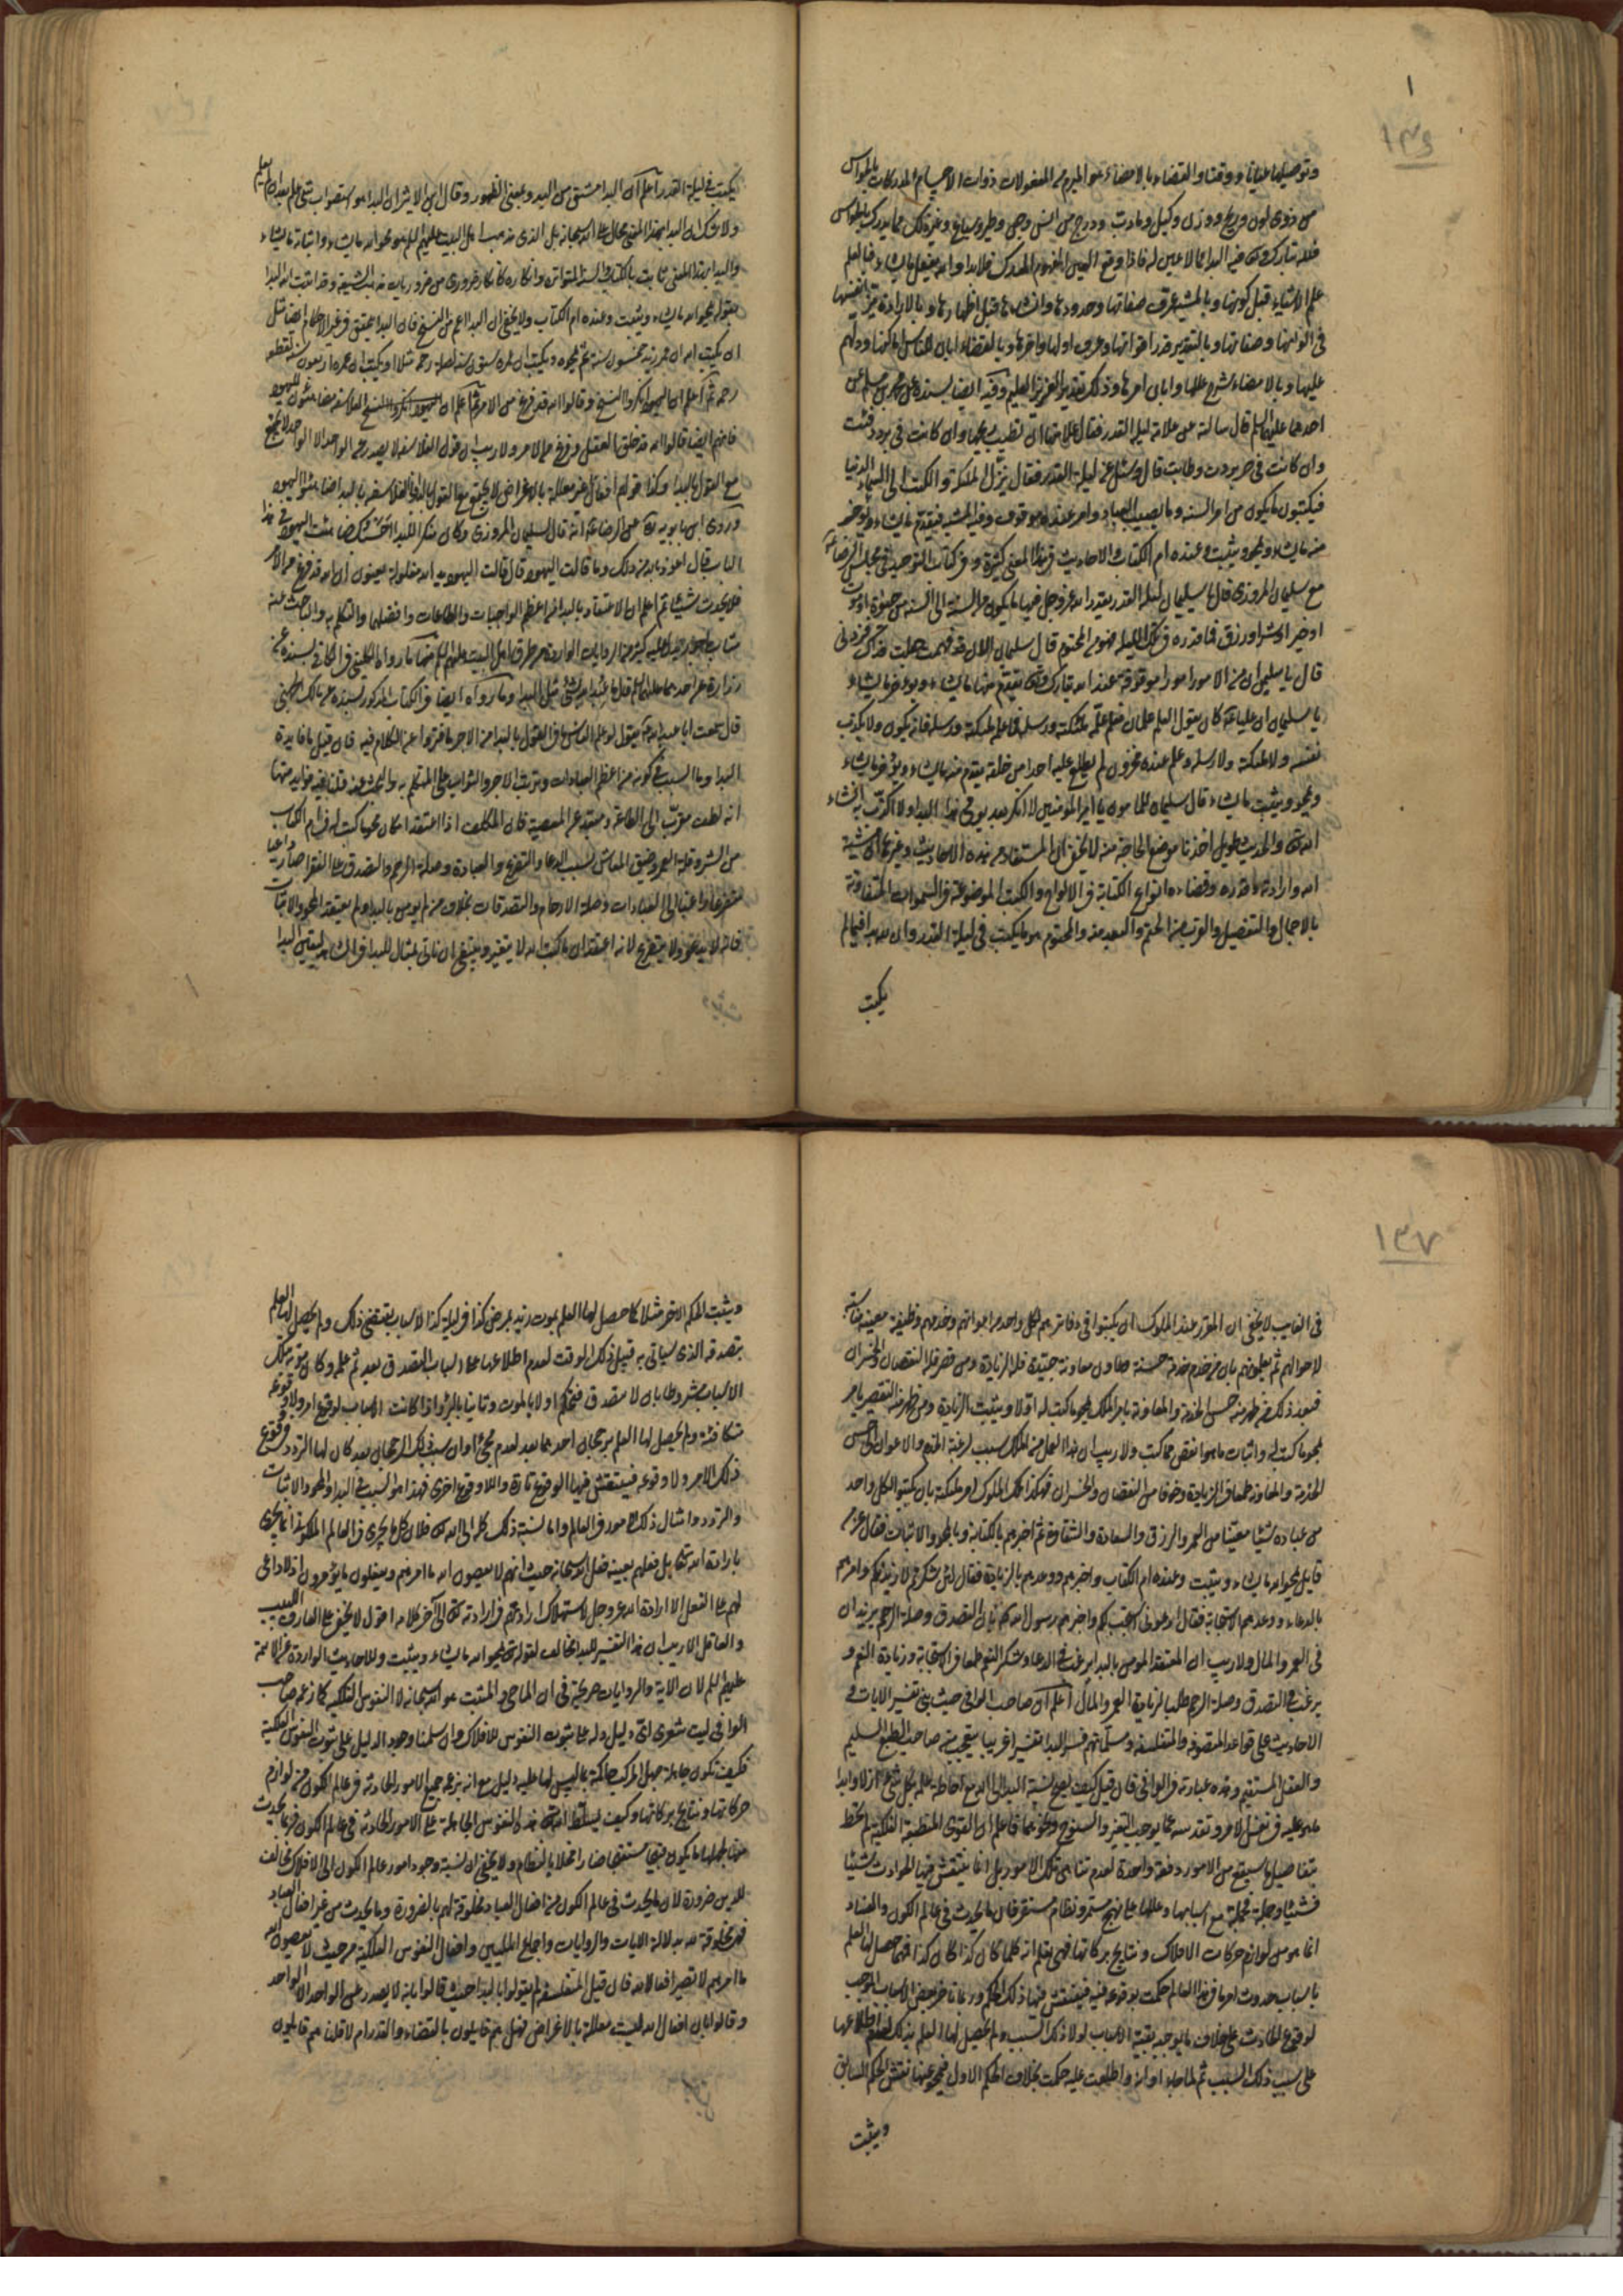 ١
١٣٦
وتوصيلها عيانا ووقتا والقضاء بالامضاء هو المبرم من المفعولات ذوات الاجسام المدركات بالحواس
من ذوى لون وريح ووزن وكيل وما دب ودرج من انس وجن وطير وسباع وغير ذلك مما يدرك بالحواس
فلله تبارك وتعالى فيه البدا مما لا عين له فاذا وقع العين المفهوم المدرك فلا بدا والله يفعل ما يشاء فبالعلم
علم الاشياء قبل كونها وبالمشية عرف صفاتها وحدودها وانشاءها قبل اظهارها وبالارادة ميز انفسها
فى الوانها وصفاتها وبالتقدير قدر اقواتها وعرف اولها واخرها وبالقضاء ابان للناس اماكنها ودلهم
عليها وبالامضاء شرح عللها وابان امرها وذلك تقدير العزيز العليم وفيه ايضا بسنده عن محمد بن مسلم عن
احدهما عليهما السلم قال سالته عن علامة ليلة القدر فقال علامتها ان تطيب ريحها وان كانت فى برد دفئت
وان كانت فى حر بردت وطابت قال وسئل عن ليلة القدر فقال ينزل الملئكة والكتبة الى السماء الدنيا
فيكتبون ما يكون من امر السنة وما يصيب العباد وامر عنده موقوف وفيه المشية فيقدم ما يشاء ويؤخر
منه ما يشاء ويمحو ويثبت وعنده ام الكتاب والاحاديث فى هذا المعنى كثيرة وفى كتاب التوحيد فى مجلس الرضا
مع سليمان المروزى قال يا سليمان ليلة القدر يقدر الله عز وجل فيها ما يكون من السنة الى السنة من حيوة او موت
او خير او شر او رزق فما قدره فى تلك الليلة فهو من المحتوم قال سليمان الان قد فهمت جعلت فداك فزدنى
قال يا سليمان ان من الامور امورا موقوفة عند الله تبارك وتعالى يقدم منها ما يشاء ويؤخر ما يشاء
يا سليمان ان عليا كان يقول العلم علمان فعلم علمه ملئكته ورسله فما علمه ملئكته ورسله فانه يكون ولا يكذب
نفسه ولا ملئكته ولا رسله وعلم عنده مخزون لم يطلع عليه احدا من خلقه يقدم منه ما يشاء ويؤخر ما يشاء
ويمحو ويثبت ما يشاء قال سليمان للمامون يا امير المؤمنين لا انكر بعد يومى هذا البداء ولا اكذب به ان شاء
الله تعالى والحديث طويل اخذنا موضع الحاجة منه لا يخفى ان المستفاد من هذه الاحاديث وغيرها ان مشية
الله وارادته وقدره وقضاءه انواع الكتابة فى الالواح والكتب الموضوعة فى السموات المتفاوتة
بالاجمال والتفصيل والقرب من الحتم والبعد منه والمحتوم هو ما يكتب فى ليلة القدر وان لله بدا فيما لم
يكتب
يكتب فى ليلة القدر اعلم ان البدا مشتق من البدو بمعنى الظهور وقال ابن الاثير ان البدا هو استصواب شئ علم بعد ان لم يعلم
ولا شك ان البدا بهذا المعنى محال على الله سبحانه بل الذى مذهب اهل البيت عليهم السلم هو محو الله ما يشاء واثباته ما يشاء
والبدا بهذا المعنى ثابت بالكتاب والسنة المتواترة وانكاره كانكار ضرورى من ضروريات مذهب الشيعة وقد اثبت الله البدا
بقوله يمحو الله ما يشاء ويثبت وعنده ام الكتاب ولا يخفى ان البدا اعم من النسخ فان البدا يتحقق فى غير الاحكام ايضا مثل
ان يكتب الله ان عمر زيد خمسون سنة ثم يمحوه ويكتب ان عمره ستون سنة لصلة رحمه مثلا او يكتب ان عمره اربعون سنة لقطعه
رحمه ثم اعلم ان اليهود انكروا النسخ وقالوا الله قد فرغ من الامر
فانهم ايضا قالوا الله قد خلق العقل وفرغ من الامر ولا ريب ان قول الفلاسفة لا يصدر من الواحد الا الواحد لا يجتمع
مع القول بالبدا وكذا قولهم افعال الله غير معللة بالاغراض لا يجتمع مع القول بالبدا
وروى ابن بابويه عن الرضا انه قال لسليمان المروزى وكان منكرا للبدا احسبك ضاهيت اليهود فى هذا
الباب قال اعوذ بالله من ذلك وما قالت اليهود قال قالت اليهود يد الله مغلولة يعنون ان الله قد فرغ من الامر
فلا يحدث شيئا ثم اعلم ان الاعتقاد بالبدا من اعظم الواجبات والطاعات وافضلها والمتكلم به والباحث عنه
مثاب ماجور يدل عليه كثير من الروايات الواردة من طرق اهل البيت عليهم السلم منها ما رواه الكلينى فى الكافى بسنده عن
زرارة عن احدهما عليهما السلم قال ما عبد الله بشئ مثل البداء وما رواه ايضا فى الكتاب المذكور بسنده عن مالك الجهنى
قال سمعت ابا عبد الله يقول لو علم الناس ما فى القول بالبدا من الاجر ما فتروا عن الكلام فيه فان قيل ما فايدة
البدا وما السبب فى كونه من اعظم العبادات وترتب الاجر والثواب على المتكلم به والباحث عنه قلنا فيه فوايد منها
انه لطف مقرب الى الطاعة ومبعد عن المعصية فان المكلف اذا اعتقد امكان محو ما كتب له فى ام الكتاب
من الشر وقلة العمر وضيق المعاش بسبب الدعا والتضرع والعبادة وصلة الرحم والتصدق على الفقرا صار داعيا
متضرعا راغبا الى العبادات وصلة الارحام والتصدقات بخلاف من لم يؤمن بالبدا ولم يعتقد المحو والاثبات
فانه لا يدعو ولا يتضرع لانه اعتقد ان ما كتب الله لا يتغير وينبغى ان ناتى بمثال للبدا فى الشاهد ليقس البدا
١٣٧
فى الغايب لا يخفى ان المقرر عند الملوك ان يكتبوا فى دفاترهم لكل واحد من اعوانهم وخدمهم وظيفة معينة مناسبة
لاحوالهم ثم يعلمونهم بان من خدم خدمة حسنة وعاون معاونة جيدة فله الزيادة ومن قصر فله النقصان والخسران
فبعد ذلك من ظهر منه حسن الخدمة والمعاونة يامر الملك بمحو ما كتب له اولا ويثبت الزيادة ومن ظهر منه التقصير يامر
بمحو ما كتب له واثبات ما هو انقص مما كتب ولا ريب ان هذا العمل من الملك سبب لرغبة الخدم والاعوان الى حسن
الخدمة والمعاونة طمعا فى الزيادة وخوفا من النقصان والخسران فهكذا ملك الملوك امر ملئكته بان يكتبوا لكل واحد
من عباده شيئا معينا من العمر والرزق والسعادة والشقاوة ثم اخبرهم بالكتابة وبالمحو والاثبات فقال عز من
قايل يمحو الله ما يشاء ويثبت وعنده ام الكتاب واخبرهم ووعدهم بالزيادة فقال لئن شكرتم لازيدنكم وامرهم
بالدعاء ووعدهم الاستجابة فقال ادعونى استجب لكم واخبرهم رسول الله بان التصدق وصلة الرحم يزيدان
فى العمر والمال ولا ريب ان المعتقد المومن بالبدا يرغب فى الدعا وشكر النعم طمعا فى الاستجابة وزيادة النعم و
يرغب فى التصدق وصلة الرحم طلبا لزيادة العمر والمال اعلم ان صاحب الوافى حيث بنى تفسير الايات و
الاحاديث على قواعد المتصوفة والمتفلسفة ومسلماتهم فسر البدا تفسيرا غريبا يتعجب منه صاحب الطبع السليم
والعقل المستقيم وهذه عبارته فى الوافى فان قيل كيف يصح نسبة البدا الى الله تعالى مع احاطة علمه بكل شئ ازلا وابدا
على ما هو عليه فى نفس الامر وتقدسه عما يوجب التغير والسنوح ونحوهما فاعلم ان القوى المنطبعة الفلكية لم تحط
بتفاصيل ما سيقع من الامور دفعة واحدة لعدم تناهى تلك الامور بل انما ينتقش فيها الحوادث شيئا
فشيئا وجملة فجملة مع اسبابها وعللها على نهج مستمر ونظام مستقر فان ما يحدث فى عالم الكون والفساد
انما هو من لوازم حركات الافلاك ونتايج بركاتها فهى تعلم انه كلما كان كذا كان كذا فمهما حصل لها العلم
باسباب حدوث امر ما فى هذا العالم حكمت بوقوعه فيه فينتقش فيها ذلك الحكم وربما تاخر بعض الاسباب الموجب
لوقوع الحادث على خلاف ما يوجبه بقية الاسباب لولا ذلك السبب ولم يحصل لها العلم بذلك لعدم اطلاعها
على سبب ذلك السبب ثم لما جاء اوانه واطلعت عليه حكمت بخلاف الحكم الاول فيمحو عنها نقش الحكم السابق
ويثبت
ويثبت الحكم الاخر مثلا كما حصل لها العلم بموت زيد بمرض كذا فى ليلة كذا لاسباب تقتضى ذلك ولم يحصل لها العلم
بتصدقه الذى سياتى به قبيل ذلك الوقت لعدم اطلاعها على اسباب التصدق بعد ثم علمت وكان موته بتلك
الاسباب مشروطا بان لا يتصدق فتحكم اولا بالموت وثانيا بالبرؤ واذا كانت الاسباب لوقوع امر ولا وقوعه
متكافئة ولم يحصل لها العلم برجحان احدهما بعد لعدم مجئ اوان سبب ذلك الرجحان بعد كان لها التردد فى وقوع
ذلك الامر ولا وقوعه فينتقش فيها الوقوع تارة واللا وقوع اخرى فهذا هو السبب فى البدا والمحو والاثبات
والتردد وامثال ذلك الامور فى العالم واما نسبة ذلك كله الى الله تعالى فلان كل ما يجرى فى العالم الملكوتى انما يجرى
بارادة الله تعالى بل فعلهم بعينه فعل الله سبحانه حيث انهم لا يعصون الله ما امرهم ويفعلون ما يؤمرون اذ لا داعى
لهم على الفعل الا ارادة الله عز وجل لاستهلاك ارادتهم فى ارادته تعالى الى اخر كلامه اقول لا يخفى على العارف اللبيب
والعاقل الاريب ان هذا التفسير للبدا مخالف لقوله تعالى يمحو الله ما يشاء ويثبت وللاحاديث الواردة عن الائمة
عليهم السلم لان الاية والروايات صريحة فى ان الماحى والمثبت هو الله سبحانه لا النفوس الفلكية كما زعمه صاحب
الوافى ليت شعرى اى دليل دله على ثبوت النفوس للافلاك وان سلمنا وجود الدليل على ثبوت النفوس الفلكية
فكيف تكون جاهلة جهل المركب حاكمة بما ليس لها عليه دليل مع انه بزعمه جميع الامور الحادثة فى عالم الكون من لوازم
حركاتها ونتايج بركاتها وكيف يسلط الله هذه النفوس الجاهلة على الامور الحادثة فى عالم الكون فربما يحدث
منها بجهلها ما يكون قبيحا مستقبحا ضارا مخلا بالنظام ولا يخفى ان نسبة وجود امور عالم الكون الى الافلاك مخالف
للدين ضرورة لان ما يحدث فى عالم الكون من افعال العباد مخلوقة لهم بالضرورة وما يحدث من غير افعال العباد
فهى مخلوقة لله بدلالة الايات والروايات واجماع المليين وافعال النفوس الفلكية من حيث لا يعصون الله
ما امرهم لا تصير افعالا لله فان قيل المتفلسفة لم يقولوا بالبدا حيث قالوا بانه لا يصدر من الواحد الا الواحد
وقالوا بان افعال الله ليست معللة بالاغراض فهل هم قايلون بالقضاء والقدر ام لا قلنا هم قايلون